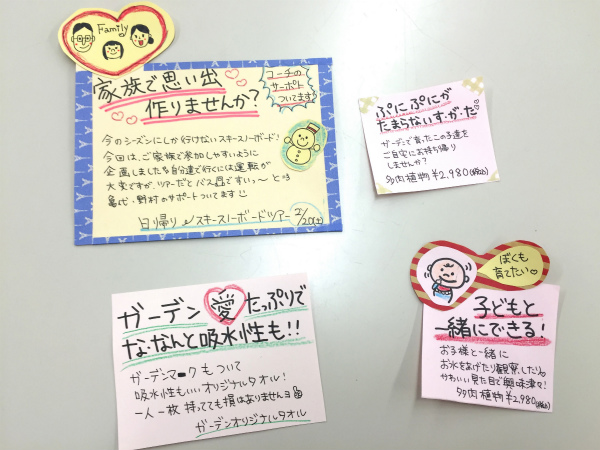 Family
家族で思い出
作りませんか?
コーチの
サーポト
ついてます
今のシーズンにしか行けないスキースノーボード!
今回は、ご家族で参加しやすいように
企画しました。自分達で行くには運転が
大変ですが、ツアーだとバス
亀代・野村のサポートついてます
日帰りスキースノーボードツアー 2/20(土)
ぷにぷにが
たまらないす・が・だ。
ガーデンで育ったこの子達を
ご自宅にお持ち帰り
しませんか?
多肉植物¥2,980(税込)
ガーデン愛たっぷりで
な・なんと吸水性も!!
ガーデンマークもついて
吸水性もいいオリジナルタオル!
一人一枚持ってても損はありませんヨ
ガーデンオリジナルタオル
ぼくも
育てたい♡
子どもと
一緒にできる!
お子様と一緒に
お水をあげたり観察したり。
かわいい見た目で興味津々!
多肉植物¥2,980(税込)